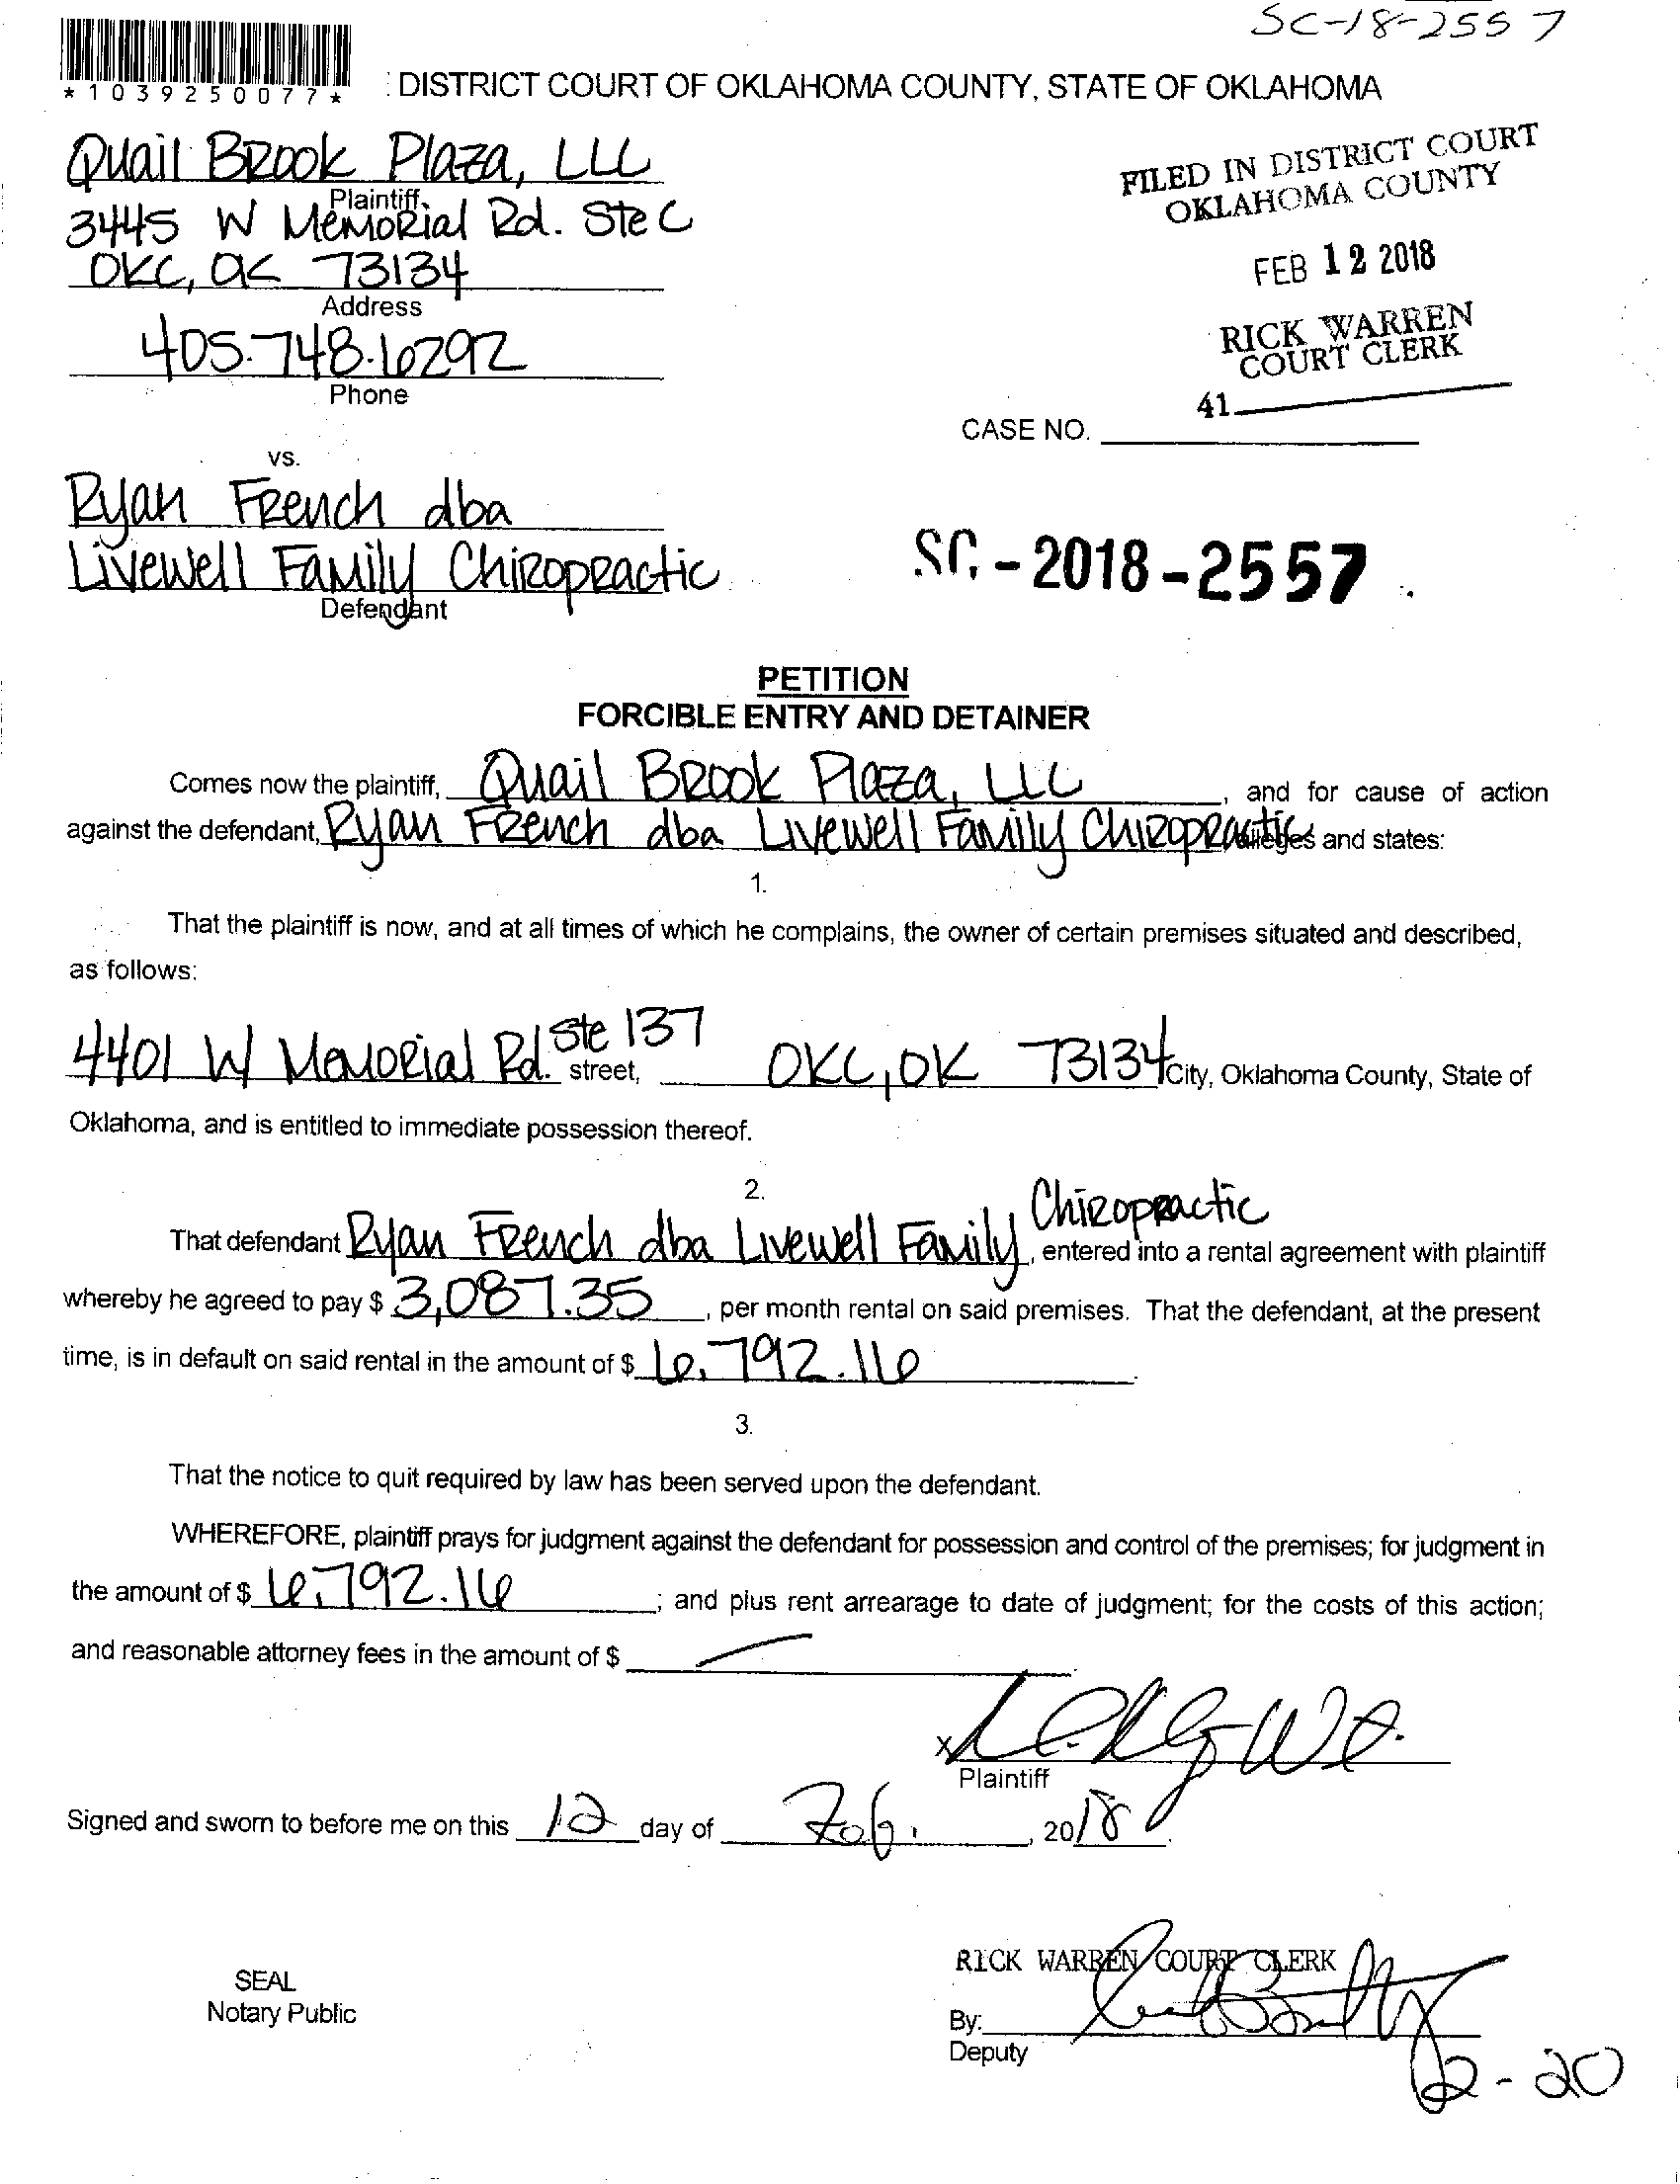 SC-18-2557
*1039250077*
DISTRICT COURT OF OKLAHOMA COUNTY, STATE OF OKLAHOMA
Quail Brook Plaza, LLC
Plaintiff
3445 W Memorial Rd. Ste C
OKC, OK 73134
Address
405.748.6292
Phone
FILED IN DISTRICT COURT
OKLAHOMA COUNTY
FEB 12 2018
RICK WARREN
COURT CLERK
41
CASE NO.
vs.
Ryan French dba
Livewell Family Chiropractic
Defendant
SC-2018-2557
PETITION
FORCIBLE ENTRY AND DETAINER
Comes now the plaintiff, Quail Brook Plaza, LLC, and for cause of action
against the defendant, Ryan French dba Livewell Family Chiropractic alleges and states:
1.
That the plaintiff is now, and at all times of which he complains, the owner of certain premises situated and described,
as follows:
4401 W Memorial Rd. Ste 137 street, OKC, OK 73134 City, Oklahoma County, State of
Oklahoma, and is entitled to immediate possession thereof.
2.
That defendant Ryan French dba Livewell Family Chiropractic, entered into a rental agreement with plaintiff
whereby he agreed to pay $ 3,087.35, per month rental on said premises. That the defendant, at the present
time, is in default on said rental in the amount of $ 6,792.16.
3.
That the notice to quit required by law has been served upon the defendant.
WHEREFORE, plaintiff prays for judgment against the defendant for possession and control of the premises; for judgment in
the amount of $ 6,792.16; and plus rent arrearage to date of judgment; for the costs of this action;
and reasonable attorney fees in the amount of $
x
Plaintiff
Signed and sworn to before me on this 12 day of Feb., 2018.
RICK WARREN COURT CLERK
SEAL
Notary Public
By:
Deputy
2-20